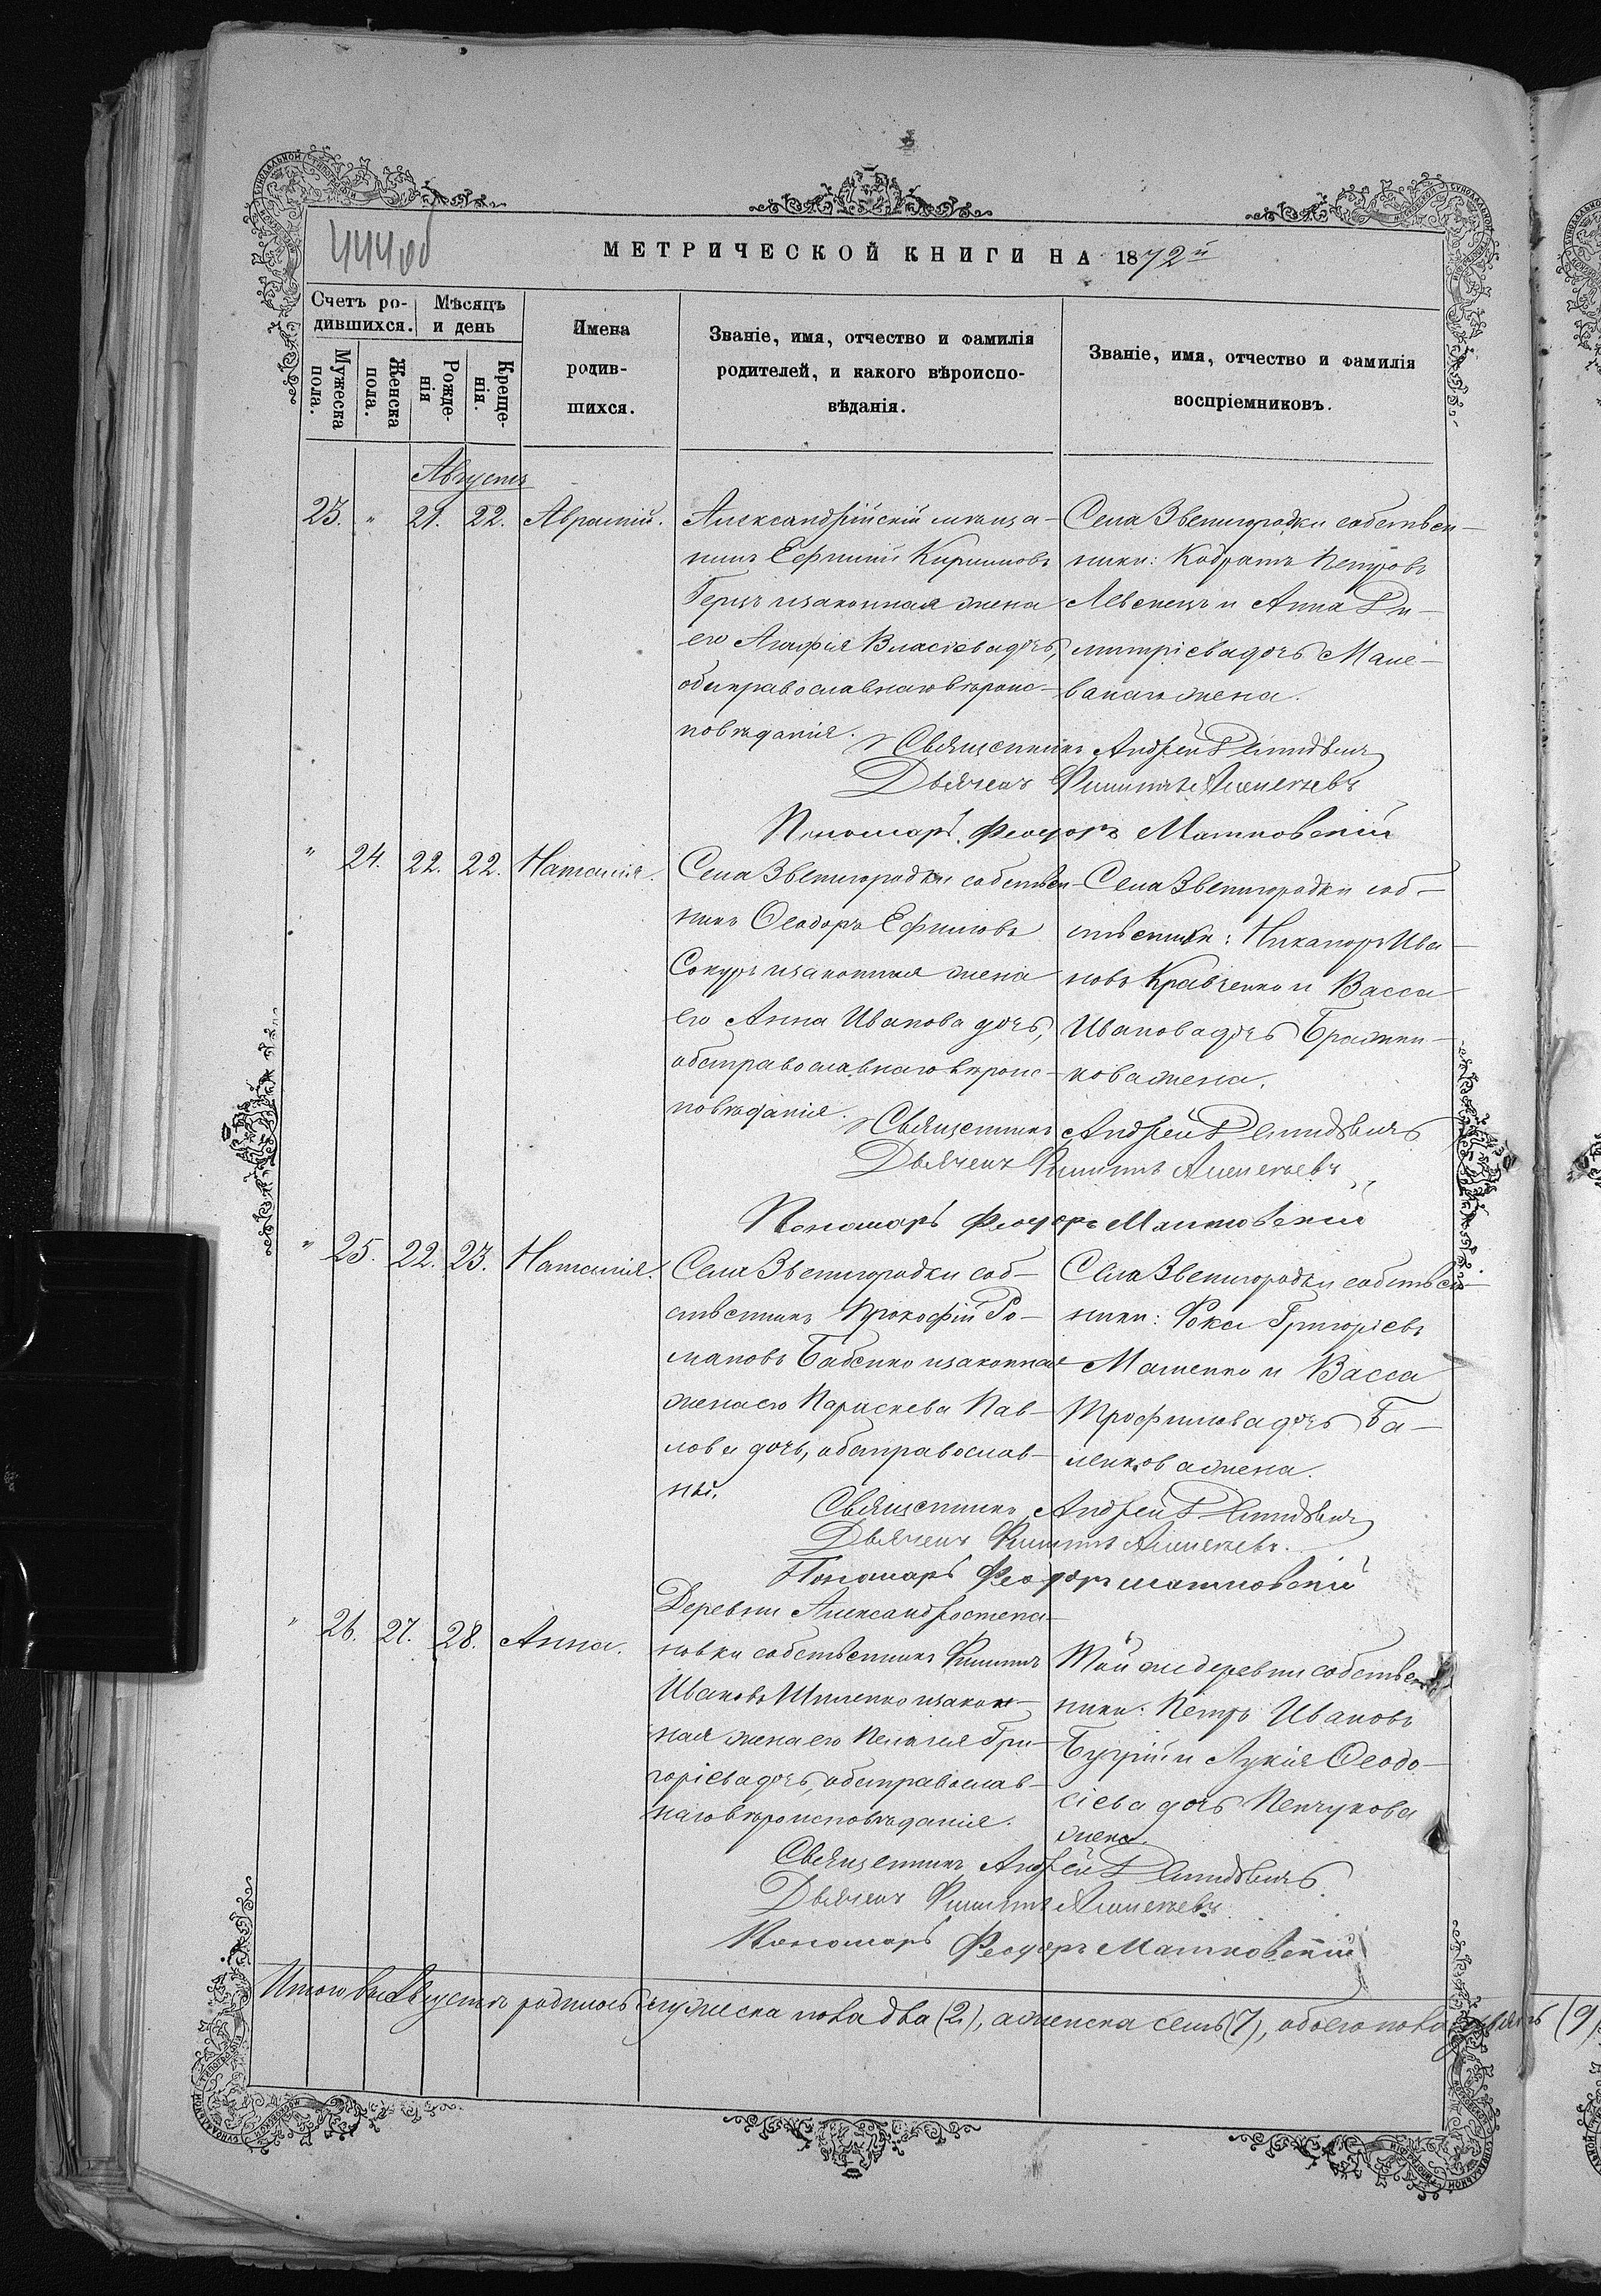 444об
МЕТРИЧЕСКОЙ КНИГИ НА 1872й
Счетъ ро-
дившихся.
Мѣсяцъ
и день
Мужеска
пола.
Женска
пола.
Рожде-
нія
Креще-
нія.
Имена
родив-
шихся.
Званіе, имя, отчество и фамилія
родителей, и какого вѣроиспо-
вѣданія.
Званіе, имя, отчество и фамилія
воспріемниковъ.
Августъ
23. " 21. 22.
Александрійскій мѣща-
нинъ Ефимій Кириловъ
изаконная жена
его Агафія Власіева дочь,
оба православнаго вѣроис-
повѣданія.
Села Звенигородки собствен-
ники: Кодратъ Петровъ
и Анна Ди-
митріева дочь
жена.
Священникъ Андрей
Дьячекъ Филиппъ Алексѣевъ
Пономарь Феодоръ Машковскій
" 24. 22. 22. Наталія.
Села Звенигородки собствен-
никъ Ѳеодоръ Ефимовъ
Сокуръ изаконная жена
его Анна Иванова дочь,
оба православнаго вѣроис-
повѣданія.
Села Звенигородки соб-
ственники: Никаноръ Ива-
новъ Кравченко и Васса
Иванова дочь Бражни-
кова жена.
Священникъ Андрей
Дьячекъ Филиппъ Алексѣевъ
Пономарь Феодоръ Машковскій
" 25. 22. 23. Наталія.
Села Звенигородки соб-
ственникъ Прокофій Ро-
мановъ Бабенко изаконная
жена его Параскева Пав-
лова дочь, оба православ-
ны.
Села Звенигородки собствен-
ники: Фока Григоріевъ
Машенко и Васса
Трофимова дочь Га-
жена.
Священникъ Андрей
Дьячекъ Филиппъ Алексѣевъ.
Пономарь Феодоръ Машковскій
" 26. 27. 28. Анна.
Деревни Александростепа-
новки собственникъ Филиппъ
Ивановъ Шиленко изакон-
ная жена его Пелагея Гри-
горіева дочь, оба православ-
наго вѣроисповѣданія.
Той же деревни собствен-
ники: Петръ Ивановъ
Бугрій и Лукія Ѳеодо-
сіева дочь Пенчукова
жена.
Священникъ Андрей
Дьячекъ Филиппъ Алексѣевъ
Пономарь Феодоръ Машковскій
Итого въ Августѣ родилось мужеска пола два (2), а женска семь (7), обоего пола девять (9)